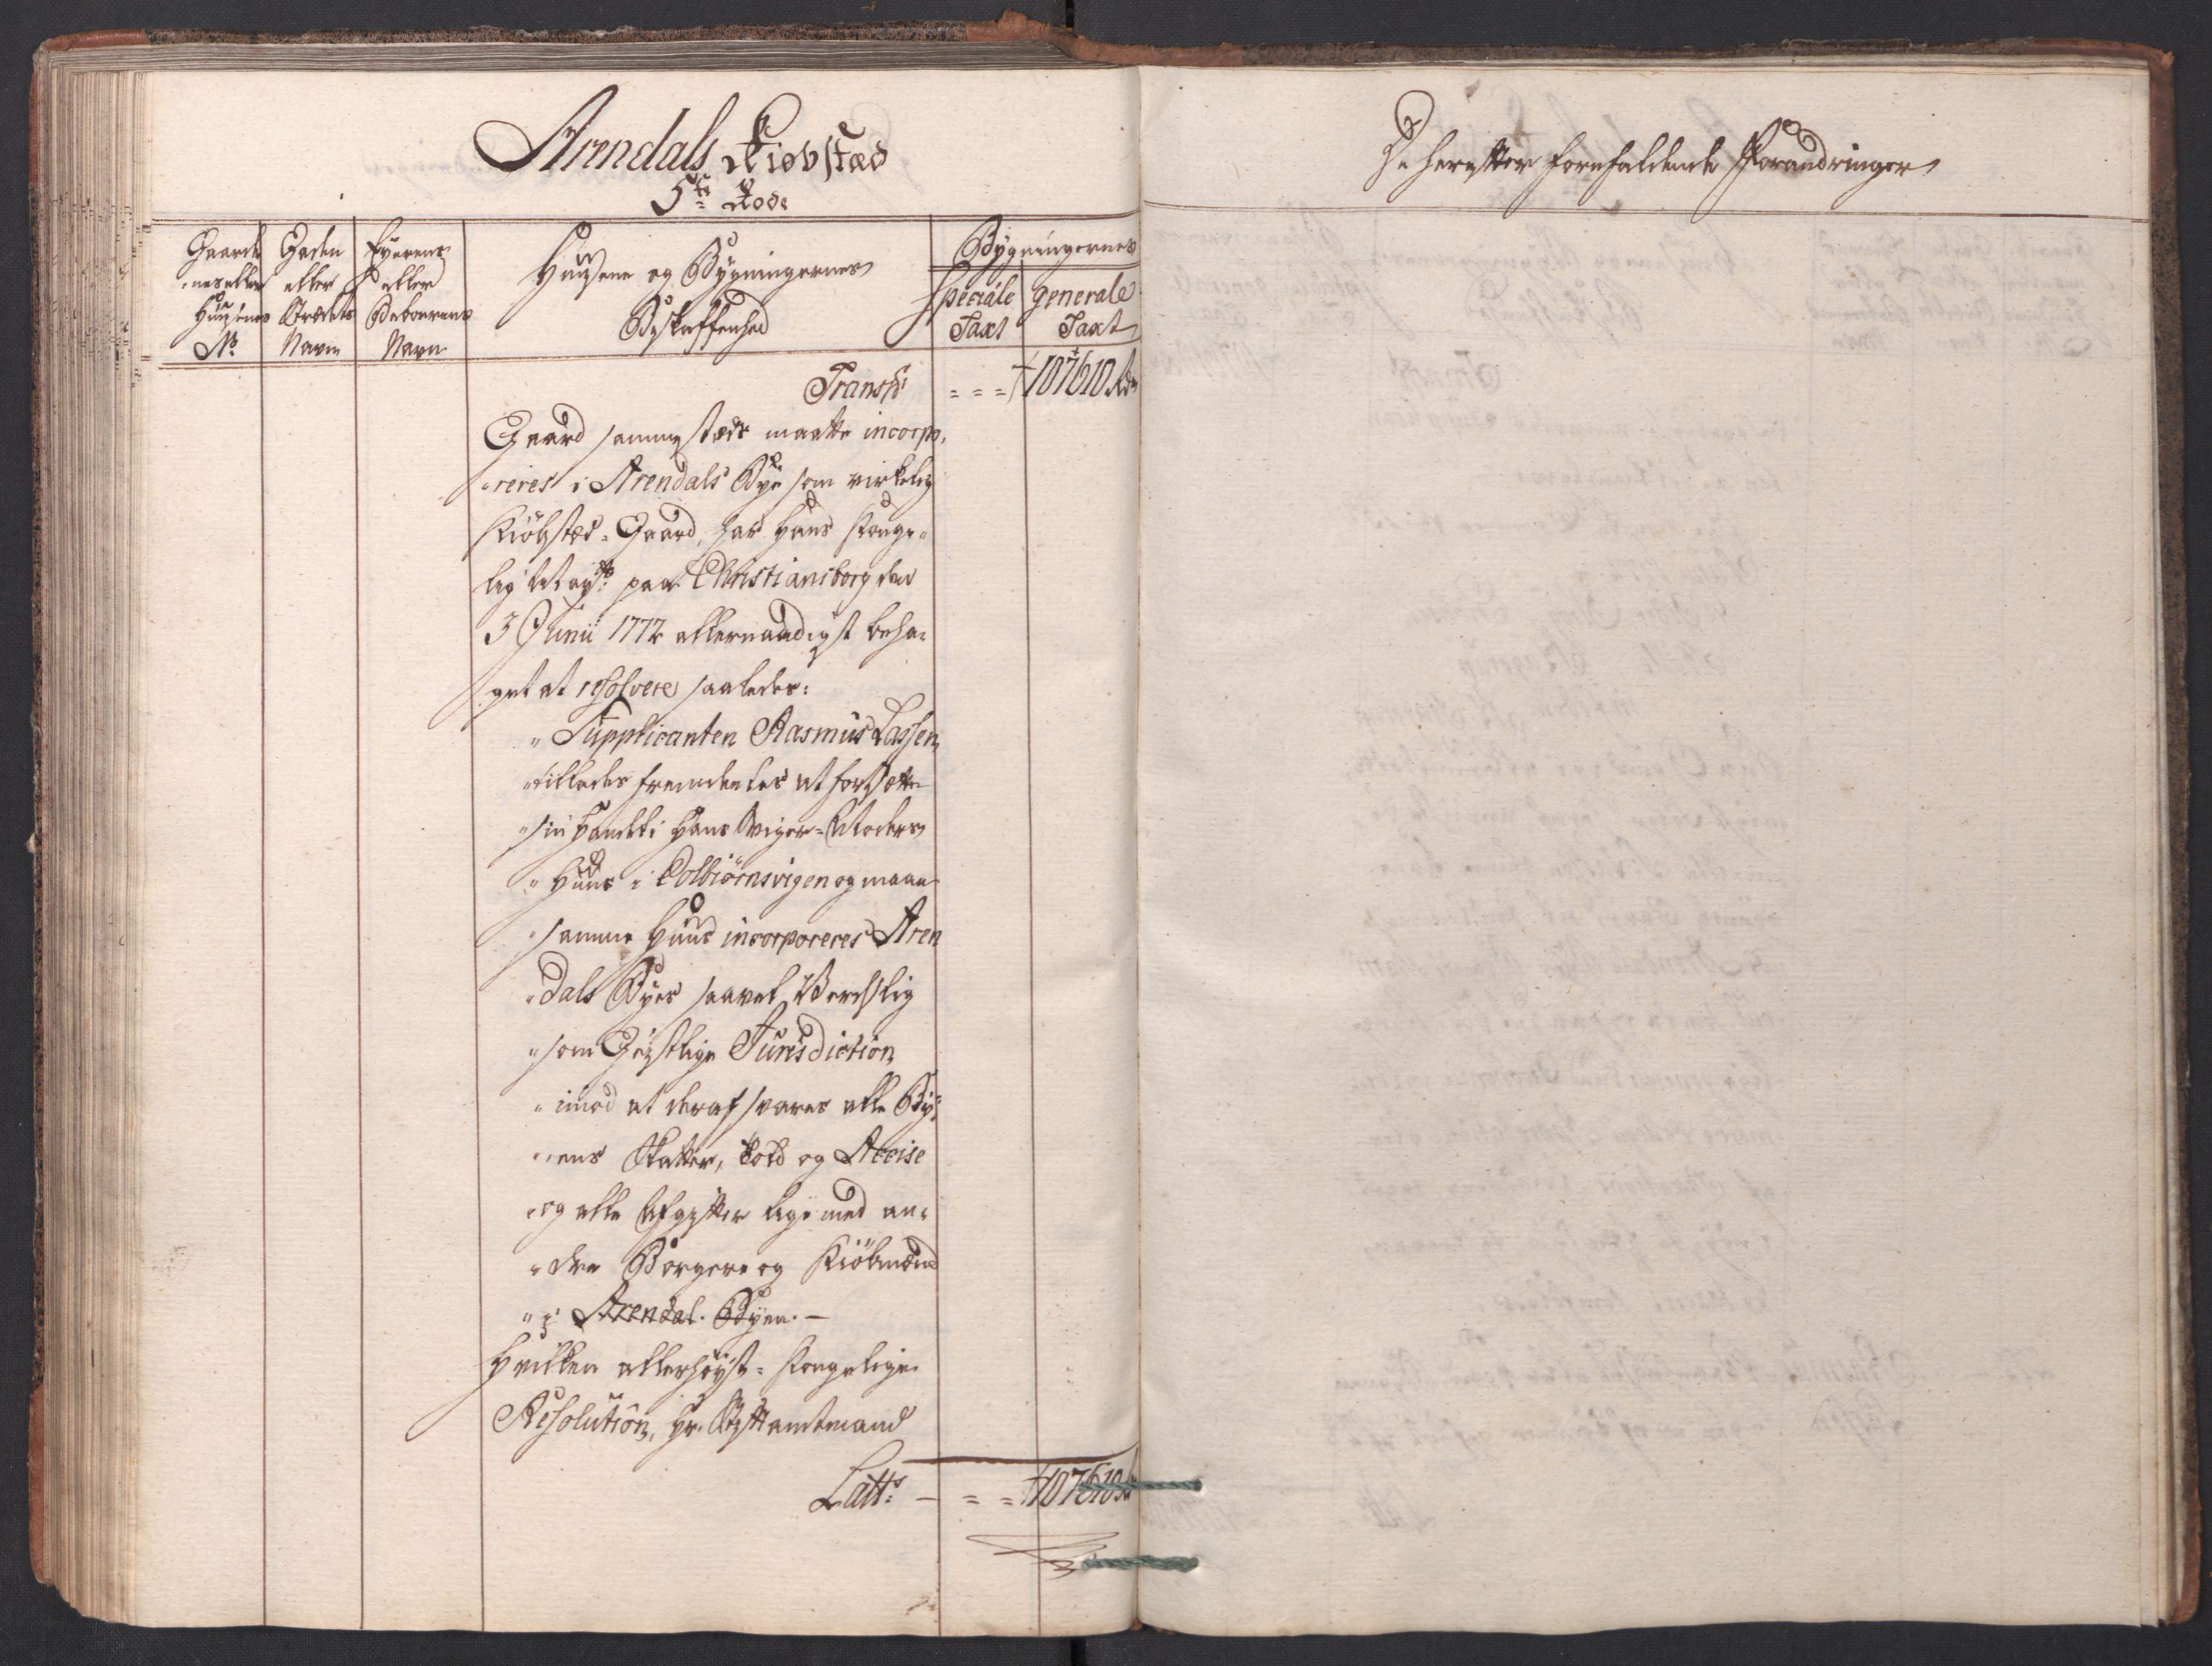 Arendals Kiøbstæd
5te Rode
Gaarde Gaden Eyerens
-nes eller eller eller
Huusenes Strædets Beboerens
No Navn Navn
Huusene og Bygningernes
Beskaffenhed
Bygningernes
Speciale generale
Taxt Taxt
Transp: = = = 107610 Rdr
Gaard sammestæds maatte incorpo,
-reres i Arendals Bye som virkelig
Kiöbstæd-Gaard, har Hans Konge-
lig Mayt: paa Christiansborg den
3 Junii 1772 allernaadigst beha-
get at resolvere saaledes:
" Supplicanten Rasmus Lassen
" tillades fremdeeles at forsætte
" sin Handel i Hans Sviger-Moders
" Huus i Colbiörnsvigen og maae
" samme Huus incorporeres Aren
" dals Byes saavel Verdslig
" som Geistlige Jurisdiction
" imod at deraf svares alle By-
" ens Skatter, Told og Accise
" og alle Afgifter lige med an-
" dre Borgere og Kiöbmænd
" i Arendal Byen. —
Hvilken allerhöyst-Kongelige
Resolution, Hr. Stiftamtmand
Latt: — = = 107610 Rd
De herefter forefaldende Forandringer